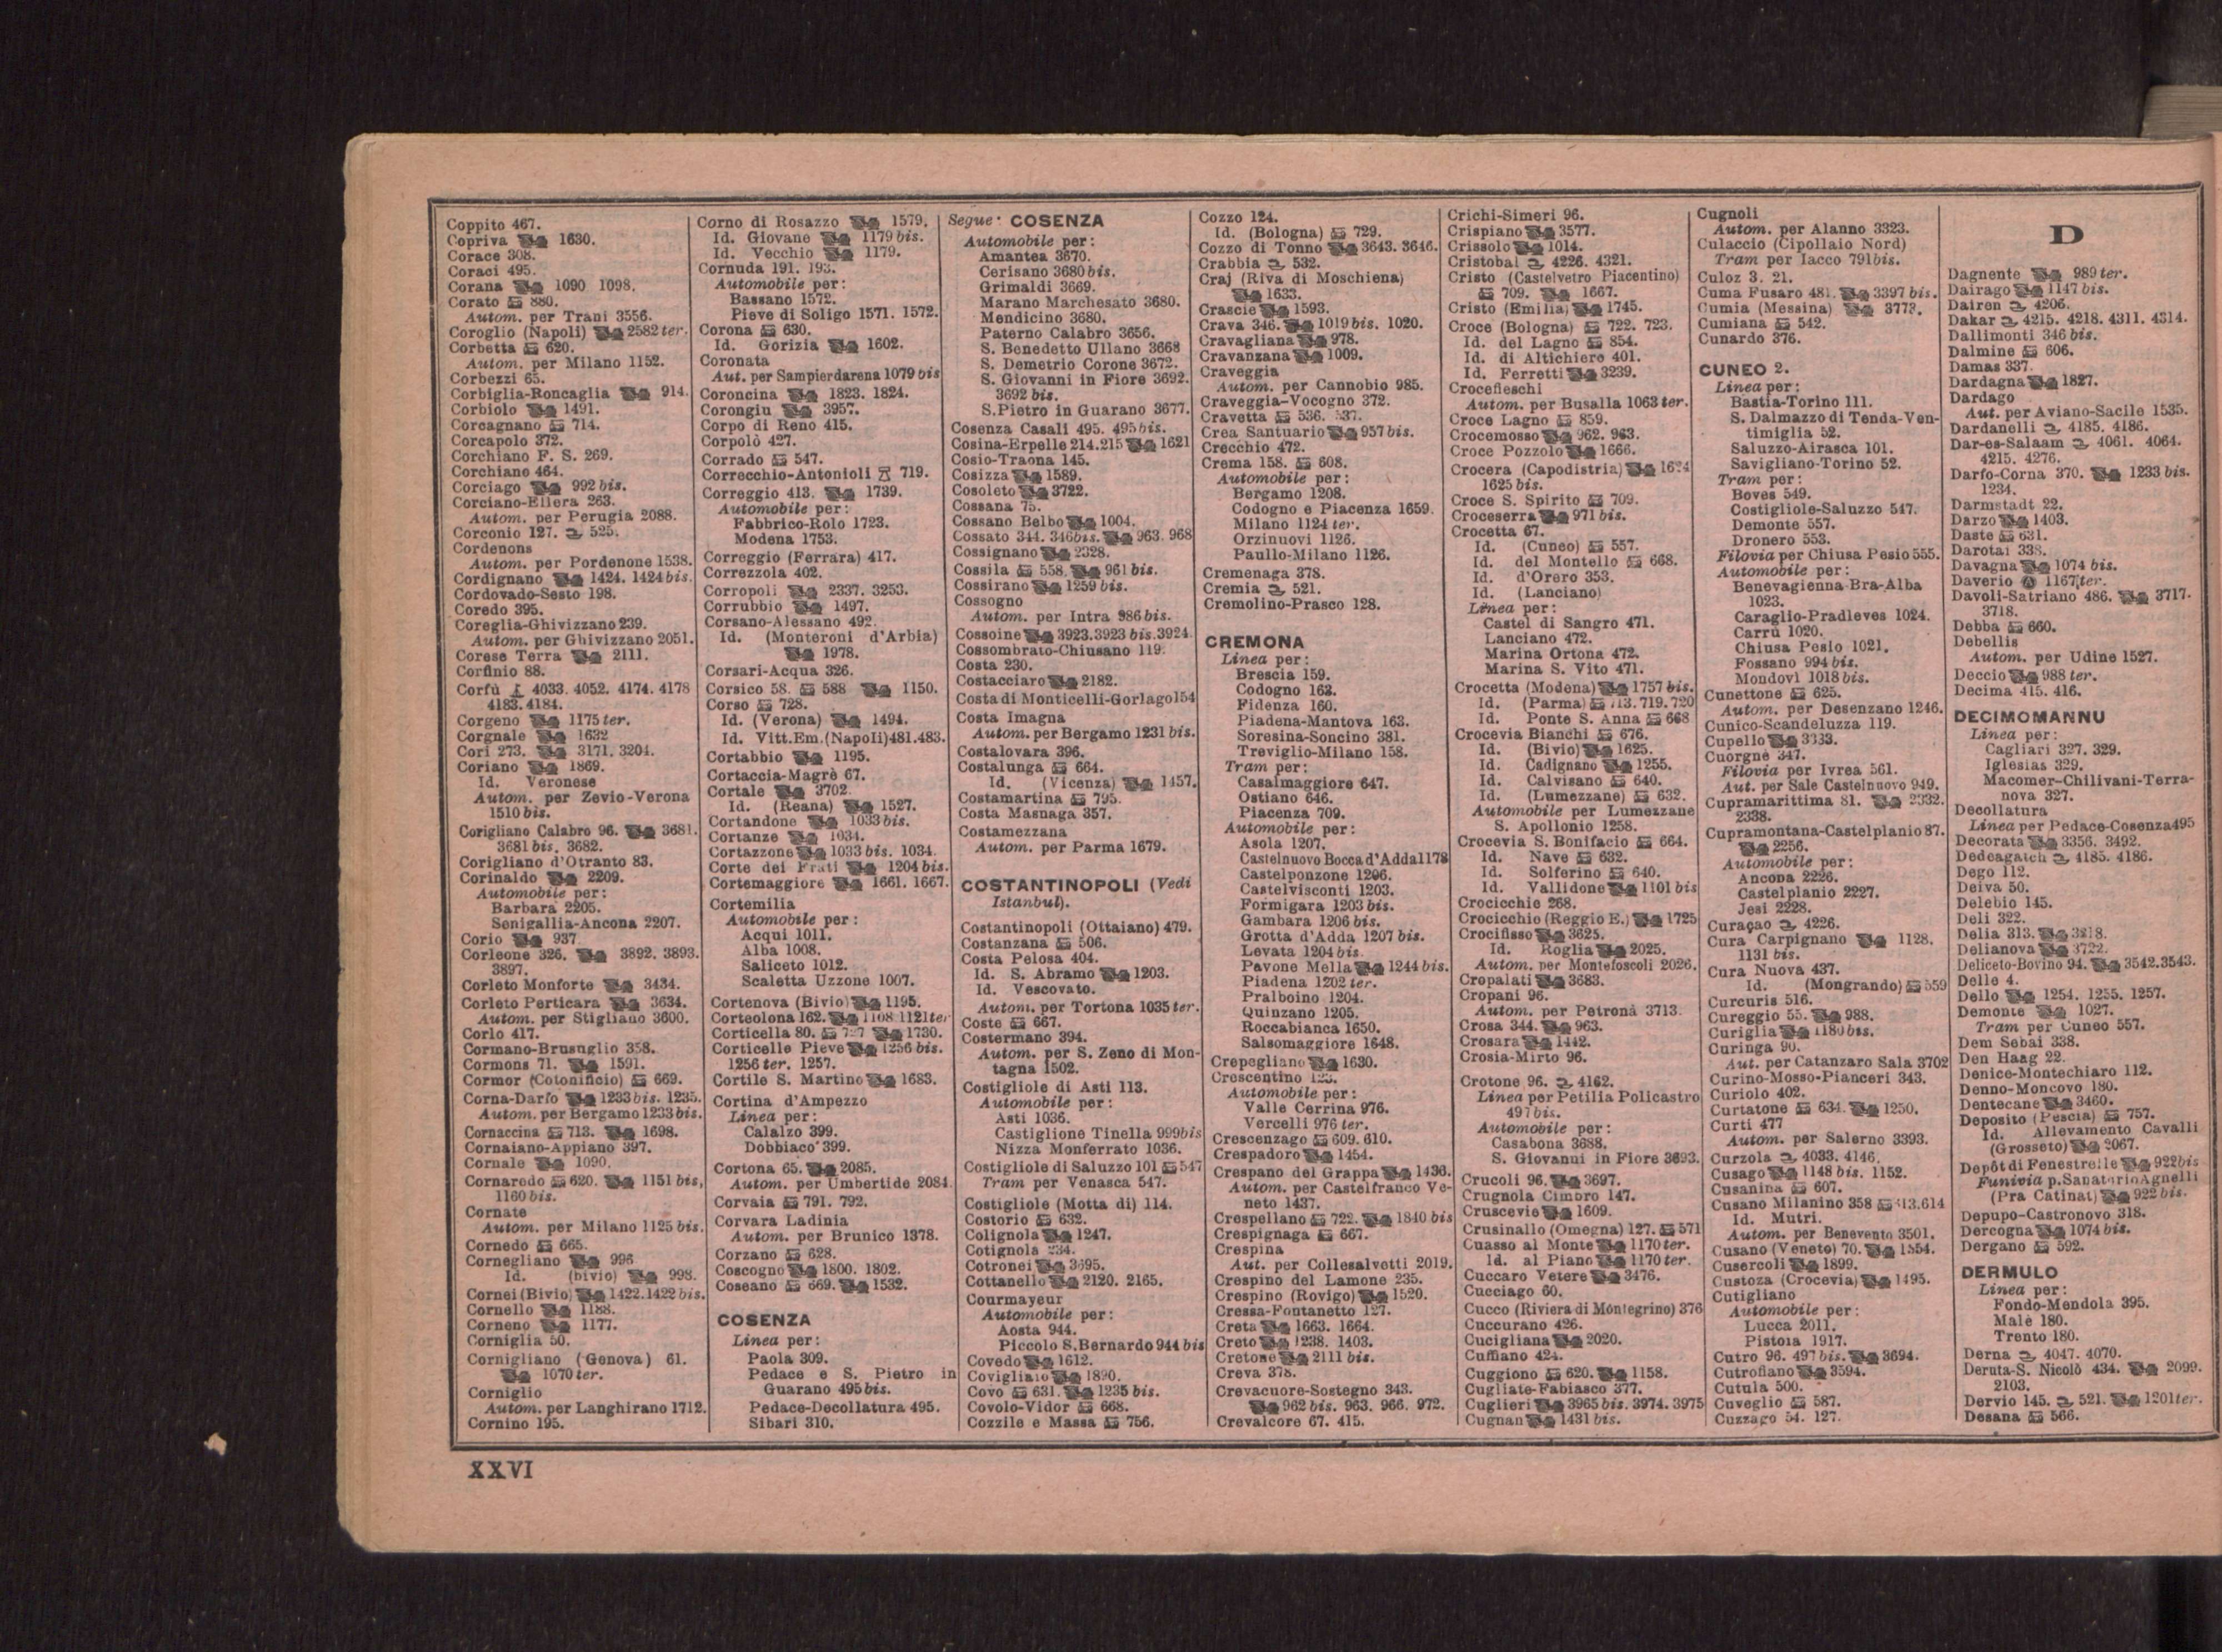 Coppito 467.
Copriva 1630.
Corace 308.
Coraci 495.
Corana 1090 1098.
Corato 880.
Autom. per Trani 3556.
Coroglio (Napoli) 2582 ter.
Corbetta 620.
Autom. per Milano 1152.
Corbezzi 65.
Corbiglia-Roncaglia 914.
Corbiolo 1491.
Corcagnano 714.
Corcapolo 372.
Corchiano F. S. 269.
Corchiano 464.
Corciago 992 bis.
Corciano-Ellera 263.
Autom. per Perugia 2088.
Corconio 127. 525.
Cordenons
Autom. per Pordenone 1538.
Cordignano 1424. 1424 bis.
Cordovado-Sesto 198.
Coredo 395.
Coreglia-Ghivizzano 239.
Autom. per Ghivizzano 2051.
Corese Terra 2111.
Corfinio 88.
Corfù 4033. 4052. 4174. 4178
4183. 4184.
Corgeno 1175 ter.
Corgnale 1632
Cori 273. 3171. 3204.
Coriano 1869.
Id. Veronese
Autom. per Zevio-Verona
1510 bis.
Corigliano Calabro 96. 3681.
3681 bis. 3682.
Corigliano d'Otranto 83.
Corinaldo 2209.
Automobile per:
Barbara 2205.
Senigallia-Ancona 2207.
Corio 937
Corleone 326. 3892. 3893.
3897.
Corleto Monforte 3434.
Corleto Perticara 3634.
Autom. per Stigliano 3600.
Corlo 417.
Cormano-Brusuglio 358.
Cormons 71. 1591.
Cormor (Cotonificio) 669.
Corna-Darfo 1233 bis. 1235.
Autom. per Bergamo 1233 bis.
Cornaccina 713. 1698.
Cornaiano-Appiano 397.
Cornale 1090.
Cornaredo 620. 1151 bis,
1160 bis.
Cornate
Autom. per Milano 1125 bis.
Cornedo 665.
Cornegliano 996
Id. (bivio) 998.
Cornei (Bivio) 1422. 1422 bis.
Cornello 1188.
Corneno 1177.
Corniglia 50.
Cornigliano (Genova) 61.
1070 ter.
Corniglio
Autom. per Langhirano 1712.
Cornino 195.
Corno di Rosazzo 1579.
Id. Giovane 1179 bis.
Id. Vecchio 1179.
Cornuda 191. 193.
Automobile per:
Bassano 1572.
Pieve di Soligo 1571. 1572.
Corona 630.
Id. Gorizia 1602.
Coronata
Aut. per Sampierdarena 1079 bis
Coroncina 1823. 1824.
Corongiu 3957.
Corpo di Reno 415.
Corpolò 427.
Corrado 547.
Correcchio-Antonioli 719.
Correggio 413. 1739.
Automobile per:
Fabbrico-Rolo 1723.
Modena 1753.
Correggio (Ferrara) 417.
Correzzola 402.
Corropoli 2337. 3253.
Corrubbio 1497.
Corsano-Alessano 492.
Id. (Monteroni d'Arbia)
1978.
Corsari-Acqua 326.
Corsico 58. 588 1150.
Corso 728.
Id. (Verona) 1494.
Id. Vitt.Em.(Napoli)481.483.
Cortabbio 1195.
Cortaccia-Magrè 67.
Cortale 3702
Id. (Reana) 1527.
Cortandone 1033 bis.
Cortanze 1034.
Cortazzone 1033 bis. 1034.
Corte dei Frati 1204 bis.
Cortemaggiore 1661. 1667.
Cortemilia
Automobile per:
Acqui 1011.
Alba 1008.
Saliceto 1012.
Scaletta Uzzone 1007.
Cortenova (Bivio) 1195.
Corteolona 162. 1108 1121 ter
Corticella 80. 1730.
Corticelle Pieve 1256 bis.
1256 ter. 1257.
Cortile S. Martino 1683.
Cortina d'Ampezzo
Linea per:
Calalzo 399.
Dobbiaco 399.
Cortona 65. 2085.
Autom. per Umbertide 2084.
Corvaia 791. 792.
Corvara Ladinia
Autom. per Brunico 1378.
Corzano 628.
Coscogno 1800. 1802.
Coseano 669. 1532.
COSENZA
Linea per:
Paola 309.
Pedace e S. Pietro in
Guarano 495 bis.
Pedace-Decollatura 495.
Sibari 310.
Segue: COSENZA
Automobile per:
Amantea 3670.
Cerisano 3680 bis.
Grimaldi 3669.
Marano Marchesato 3680.
Mendicino 3680.
Paterno Calabro 3656.
S. Benedetto Ullano 3668
S. Demetrio Corone 3672.
S. Giovanni in Fiore 3692.
3692 bis.
S.Pietro in Guarano 3677.
Cosenza Casali 495. 495 bis.
Cosina-Erpelle 214.215 1621
Cosio-Traona 145.
Cosizza 1589.
Cosoleto 3722.
Cossana 75.
Cossano Belbo 1004.
Cossato 344. 346 bis. 963. 968
Cossignano 2328.
Cossila 558. 961 bis.
Cossirano 1259 bis.
Cossogno
Autom. per Intra 986 bis.
Cossoine 3923.3923 bis.3924
Cossombrato-Chiusano 119.
Costa 230.
Costacciaro 2182.
Costa di Monticelli-Gorlago154
Costa Imagna
Autom. per Bergamo 1231 bis.
Costalovara 396.
Costalunga 664.
Id. (Vicenza) 1457.
Costamartina 795.
Costa Masnaga 357.
Costamezzana
Autom. per Parma 1679.
COSTANTINOPOLI (Vedi
Istanbul).
Costantinopoli (Ottaiano) 479.
Costanzana 506.
Costa Pelosa 404.
Id. S. Abramo 1203.
Id. Vescovato.
Autom. per Tortona 1035 ter.
Coste 667.
Costermano 394.
Autom. per S. Zeno di Mon-
tagna 1502.
Costigliole di Asti 113.
Automobile per:
Asti 1036.
Castiglione Tinella 999 bis
Nizza Monferrato 1036.
Costigliole di Saluzzo 101 547
Tram per Venasca 547.
Costigliole (Motta di) 114.
Costorio 632.
Colignola 1247.
Cotignola 234.
Cotronei 3695.
Cottanello 2120. 2165.
Courmayeur
Automobile per:
Aosta 944.
Piccolo S.Bernardo 944 bis
Covedo 1612.
Covigliaio 1890.
Covo 631. 1235 bis.
Covolo-Vidor 668.
Cozzile e Massa 756.
Cozzo 124.
Id. (Bologna) 729.
Cozzo di Tonno 3643. 3646.
Crabbia 532.
Craj (Riva di Moschiena)
1633.
Crascie 1593.
Crava 346. 1019 bis. 1020.
Cravagliana 978.
Cravanzana 1009.
Craveggia
Autom. per Cannobio 985.
Craveggia-Vocogno 372.
Cravetta 536. 537.
Crea Santuario 957 bis.
Crecchio 472.
Crema 158. 608.
Automobile per:
Bergamo 1208.
Codogno e Piacenza 1659.
Milano 1124 ter.
Orzinuovi 1126.
Paullo-Milano 1126.
Cremenaga 378.
Cremia 521.
Cremolino-Prasco 128.
CREMONA
Linea per:
Brescia 159.
Codogno 163.
Fidenza 160.
Piadena-Mantova 163.
Soresina-Soncino 381.
Treviglio-Milano 158.
Tram per:
Casalmaggiore 647.
Ostiano 646.
Piacenza 709.
Automobile per:
Asola 1207.
Castelnuovo Bocca d'Adda1178
Castelponzone 1206.
Castelvisconti 1203.
Formigara 1203 bis.
Gambara 1206 bis.
Grotta d'Adda 1207 bis.
Levata 1204 bis.
Pavone Mella 1244 bis.
Piadena 1202 ter.
Pralboino 1204.
Quinzano 1205.
Roccabianca 1650.
Salsomaggiore 1648.
Crepegliano 1630.
Crescentino 125.
Automobile per:
Valle Cerrina 976.
Vercelli 976 ter.
Crescenzago 609. 610.
Crespadoro 1454.
Crespano del Grappa 1436.
Autom. per Castelfranco Ve-
neto 1437.
Crespellano 722. 1840 bis
Crespignaga 667.
Crespina
Aut. per Collesalvetti 2019.
Crespino del Lamone 235.
Crespino (Rovigo) 1520.
Cressa-Fontanetto 127.
Creta 1663. 1664.
Creto 1238. 1403.
Cretone 2111 bis.
Creva 378.
Crevacuore-Sostegno 343.
962 bis. 963. 966. 972.
Crevalcore 67. 415.
Crichi-Simeri 96.
Crispiano 3577.
Crissolo 1014.
Cristobal 4226. 4321.
Cristo (Castelvetro Piacentino)
709. 1667.
Cristo (Emilia) 1745.
Croce (Bologna) 722. 723.
Id. del Lagno 854.
Id. di Altichiero 401.
Id. Ferretti 3239.
Crocefieschi
Autom. per Busalla 1063 ter.
Croce Lagno 859.
Crocemosso 962. 963.
Croce Pozzolo 1666.
Crocera (Capodistria) 1624
1625 bis.
Croce S. Spirito 709.
Croceserra 971 bis.
Crocetta 67.
Id. (Cuneo) 557.
Id. del Montello 668.
Id. d'Orero 353.
Id. (Lanciano)
Linea per:
Castel di Sangro 471.
Lanciano 472.
Marina Ortona 472.
Marina S. Vito 471.
Crocetta (Modena) 1757 bis.
Id. (Parma) 713. 719. 720
Id. Ponte S. Anna 668
Crocevia Bianchi 676.
Id. (Bivio) 1625.
Id. Cadignano 1255.
Id. Calvisano 640.
Id. (Lumezzane) 632.
Automobile per Lumezzane
S. Apollonio 1258.
Crocevia S. Bonifacio 664.
Id. Nave 632.
Id. Solferino 640.
Id. Vallidone 1101 bis
Crocicchie 268.
Crocicchio (Reggio E.) 1725
Crocifisso 3625.
Id. Roglia 2025.
Autom. per Montefoscoli 2026.
Cropalati 3683.
Cropani 96.
Autom. per Petronà 3713.
Crosa 344. 963.
Crosara 1442.
Crosia-Mirto 96.
Crotone 96. 4162.
Linea per Petilia Policastro
497 bis.
Automobile per:
Casabona 3688.
S. Giovanni in Fiore 3693.
Crucoli 96. 3697.
Crugnola Cimbro 147.
Cruscevie 1609.
Crusinallo (Omegna) 127. 571
Cuasso al Monte 1170 ter.
Id. al Piano 1170 ter.
Cuccaro Vetere 3476.
Cucciago 60.
Cucco (Riviera di Montegrino) 376
Cuccurano 426.
Cucigliana 2020.
Cuffiano 424.
Cuggiono 620. 1158.
Cugliate-Fabiasco 377.
Cuglieri 3965 bis. 3974. 3975
Cugnan 1431 bis.
Cugnoli
Autom. per Alanno 3323.
Culaccio (Cipollaio Nord)
Tram per Iacco 791bis.
Culoz 3. 21.
Cuma Fusaro 481. 3397 bis.
Cumia (Messina) 3773.
Cumiana 542.
Cunardo 376.
CUNEO 2.
Linea per:
Bastia-Torino 111.
S. Dalmazzo di Tenda-Ven-
timiglia 52.
Saluzzo-Airasca 101.
Savigliano-Torino 52.
Tram per:
Boves 549.
Costigliole-Saluzzo 547.
Demonte 557.
Dronero 553.
Filovia per Chiusa Pesio 555.
Automobile per:
Benevagienna-Bra-Alba
1023.
Caraglio-Pradleves 1024.
Carrù 1020.
Chiusa Pesio 1021.
Fossano 994 bis.
Mondovì 1018 bis.
Cunettone 625.
Autom. per Desenzano 1246.
Cunico-Scandeluzza 119.
Cupello 3333.
Cuorgnè 347.
Filovia per Ivrea 561.
Aut. per Sale Castelnuovo 949.
Cupramarittima 81. 2332.
2338.
Cupramontana-Castelplanio 87.
2256.
Automobile per:
Ancona 2226.
Castelplanio 2227.
Jesi 2228.
Curaçao 4226.
Cura Carpignano 1128.
1131 bis.
Cura Nuova 437.
Id. (Mongrando) 559
Curcuris 516.
Cureggio 55. 988.
Curiglia 1180 bis.
Curinga 90.
Aut. per Catanzaro Sala 3702
Curino-Mosso-Pianceri 343.
Curiolo 402.
Curtatone 634. 1250.
Curti 477
Autom. per Salerno 3393.
Curzola 4033. 4146.
Cusago 1148 bis. 1152.
Cusanina 607.
Cusano Milanino 358 613.614
Id. Mutri.
Autom. per Benevento 3501.
Cusano (Veneto) 70. 1554.
Cusercoli 1899.
Custoza (Crocevia) 1495.
Cutigliano
Automobile per:
Lucca 2011.
Pistoia 1917.
Cutro 96. 497 bis. 3694.
Cutrofiano 3594.
Cutula 500.
Cuveglio 587.
Cuzzago 54. 127.
D
Dagnente 989 ter.
Dairago 1147 bis.
Dairen 4206.
Dakar 4215. 4218. 4311. 4314.
Dallimonti 346 bis.
Dalmine 606.
Damas 337.
Dardagna 1827.
Dardago
Aut. per Aviano-Sacile 1535.
Dardanelli 4185. 4186.
Dar-es-Salaam 4061. 4064.
4215. 4276.
Darfo-Corna 370. 1233 bis.
1234.
Darmstadt 22.
Darzo 1403.
Daste 631.
Darotai 338.
Davagna 1074 bis.
Daverio 1167 ter.
Davoli-Satriano 486. 3717.
3718.
Debba 660.
Debellis
Autom. per Udine 1527.
Deccio 988 ter.
Decima 415. 416.
DECIMOMANNU
Linea per:
Cagliari 327. 329.
Iglesias 329.
Macomer-Chilivani-Terra-
nova 327.
Decollatura
Linea per Pedace-Cosenza495
Decorata 3356. 3492.
Dedeagatch 4185. 4186.
Dego 112.
Deiva 50.
Delebio 145.
Deli 322.
Delia 313. 3818.
Delianova 3722.
Deliceto-Bovino 94. 3542.3543.
Delle 4.
Dello 1254. 1255. 1257.
Demonte 1027.
Tram per Cuneo 557.
Dem Sebai 338.
Den Haag 22.
Denice-Montechiaro 112.
Denno-Moncovo 180.
Dentecane 3460.
Deposito (Pescia) 757.
Id. Allevamento Cavalli
(Grosseto) 2067.
Depôt di Fenestrelle 922bis
Funivia p.Sanatorio Agnelli
(Pra Catinat) 922 bis.
Depupo-Castronovo 318.
Dercogna 1074 bis.
Dergano 592.
DERMULO
Linea per:
Fondo-Mendola 395.
Malè 180.
Trento 180.
Derna 4047. 4070.
Deruta-S. Nicolò 434. 2099.
2103.
Dervio 145. 521. 1201ter.
Desana 566.
XXVI